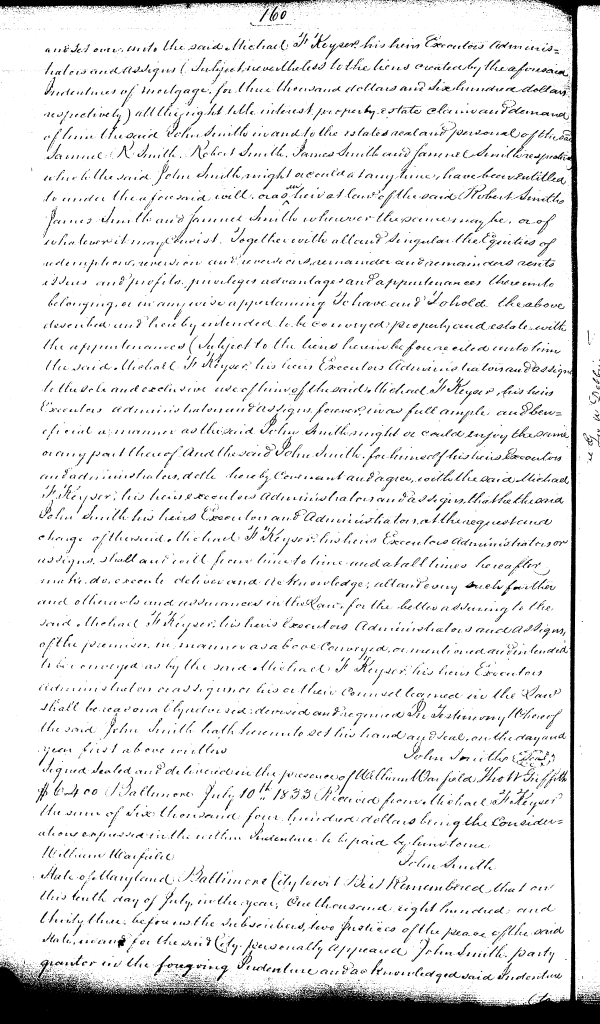 160
and set over unto the said Michael F Keyser, his heirs Executors Adminis=
trators and assigns (Subject nevertheless to the liens created by the aforesaid
Indentures of mortgage, for three thousand dollars and six hundred dollars
respectively) all the right title interest, property, estate claim and demand
of him the said John Smith in and to the estates real and personal of the said
Samuel R Smith, Robert Smith, James Smith and Samuel Smith respectively
which the said John Smith might or could at any time, have been entitled
to under the aforesaid will, or as heir at law of the said Robert Smith
James Smith and Samuel Smith wherever the same may be, or of
whatever it may consist. Together with all and singular the Equities of
redemption, reversion and reversions, remainder and remainders rents
issues and profits, privileges advantages and appurtenances thereunto
belonging, or in any wise appertaining To have and To hold the above
described and hereby intended to be conveyed property and estate with
the appurtenances (Subject to the liens herein before recited unto him
the said Michael F Keyser, his heirs Executors Administrators and assigns
to the sole and exclusive use of him of the said Michael F Keyser, his heirs
Executors administrators and assigns forever, in as full ample and ben=
eficial a manner as the said John Smith might or could enjoy the same
or any part thereof And the said John Smith, for himself his heirs Executors
and administrators, doth hereby Covenant and agree, with the said Michael
F Keyser, his heirs executors Administrators and assigns, that he the said
John Smith his heirs Executors and Administrators, at the request and
charge of the said Michael F Keyser, his heirs Executors Administrators or
assigns, shall and will from time to time and at all times hereafter
make, do, execute deliver and acknowledge, all and every such further
and other acts and assurances in the Law, for the better assuring to the
said Michael F Keyser, his heirs Executors Administrators and assigns,
of the premises, in manner as above conveyed, or mentioned and intended
to be conveyed as by the said Michael F Keyser, his heirs Executors
Administrators or assigns or his or their Counsel learned in the Law
shall be reasonably advised devised and required In Testimony Whereof
the said John Smith hath hereunto set his hand and seal, on the day and
year first above written John Smith (Seal)
Signed Sealed and delivered in the presence of William Warfield Tho W Griffith
$6400 Baltimore July 10th 1833 Received from Michael F Keyser
the sum of Six thousand four hundred dollars being the Consider=
ations expressed in the within Indenture to be paid by him to me
William Warfield John Smith
State of Maryland Baltimore City to wit Be it Remembered that on
this tenth day of July, in the year, One thousand eight hundred and
thirty three, before us the subscribers, two Justices of the peace of the said
State, in and for the said City, personally appeared John Smith party
grantor in the foregoing Indenture and acknowledged said Indenture